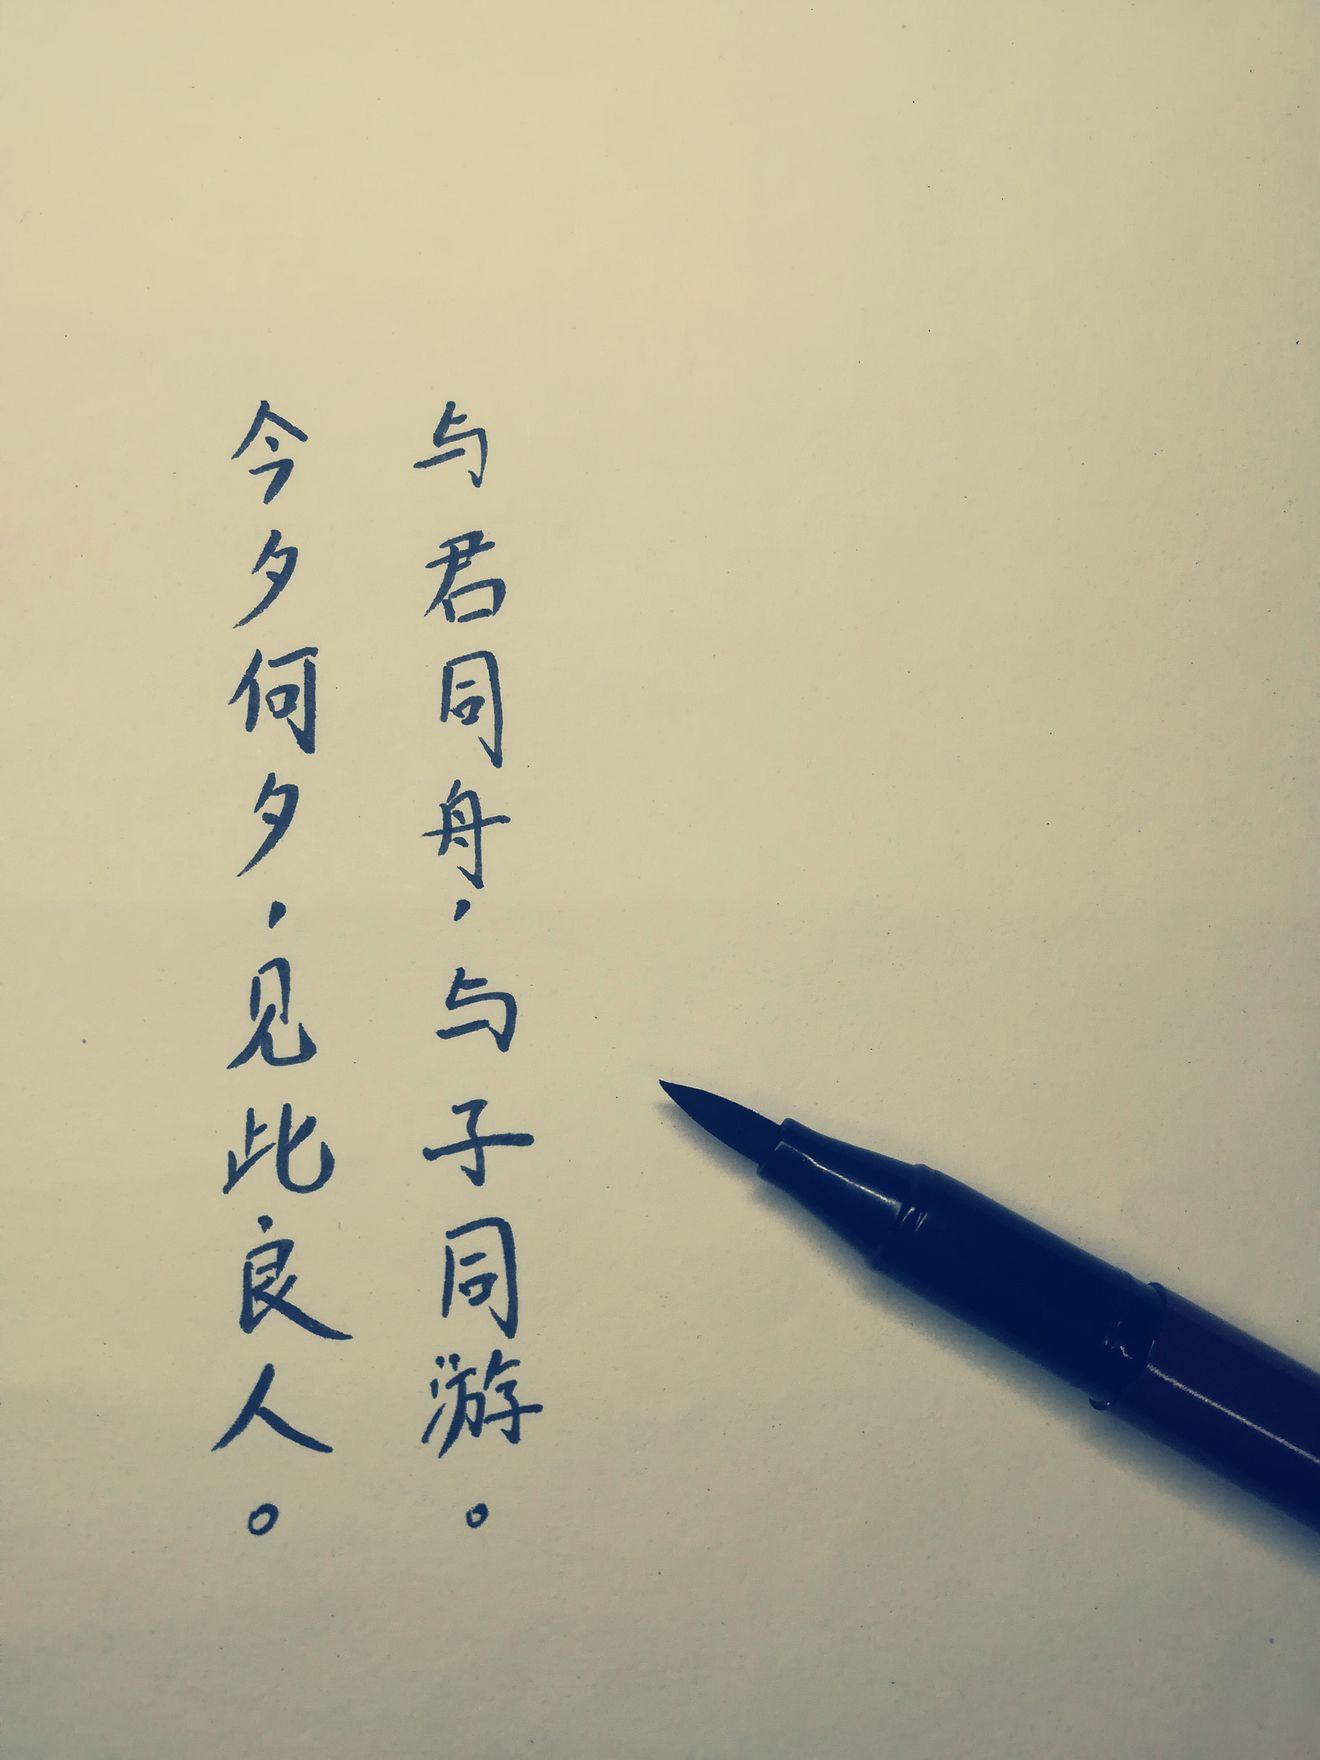 与君同舟，与子同游。
今夕何夕，见此良人。